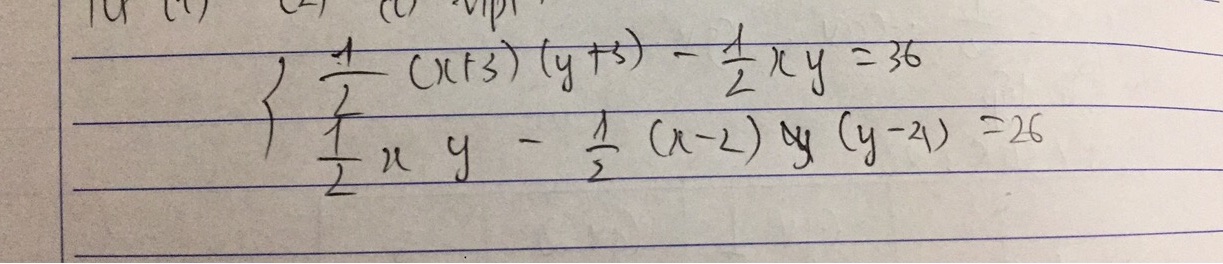 (1) (2)
{ 1/2 (x+3) (y+3) - 1/2 xy = 36
1/2 x y - 1/2 (x-2) (y-4) = 26